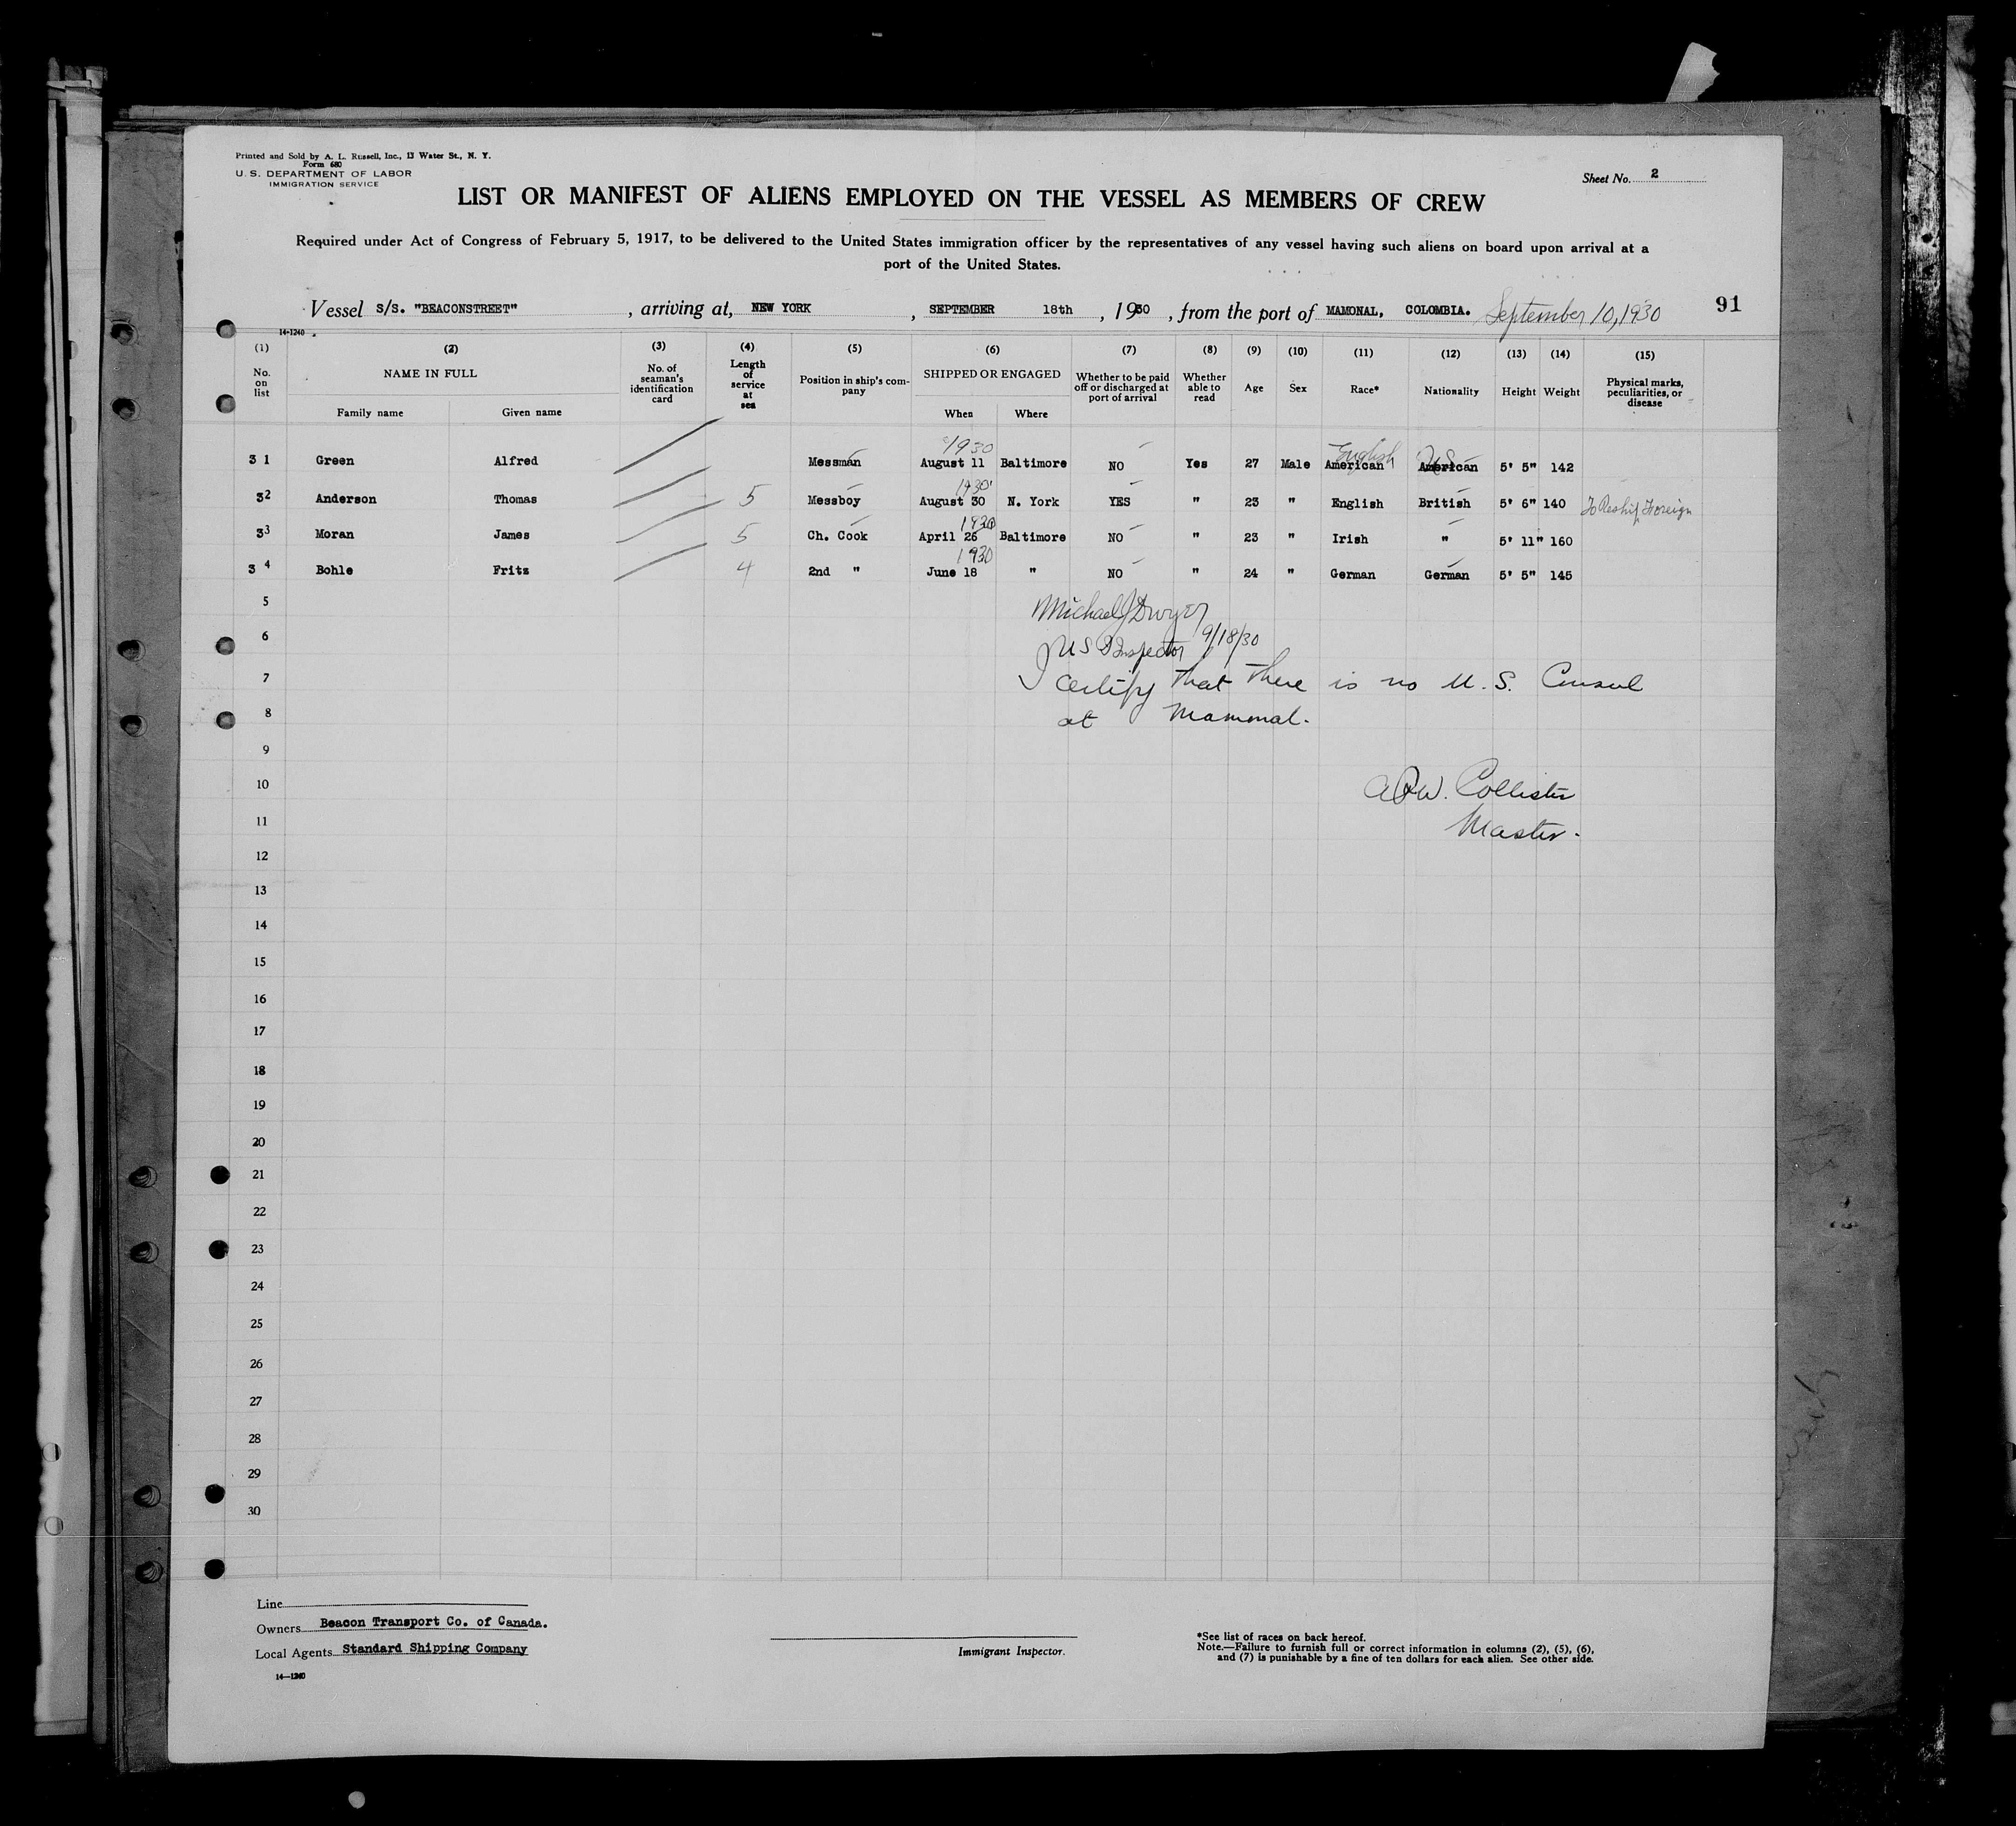 Printed and Sold by A. L. Russell, Inc., 13 Water St., N. Y.
Form 680
U. S. DEPARTMENT OF LABOR
IMMIGRATION SERVICE
Sheet No. 2
LIST OR MANIFEST OF ALIENS EMPLOYED ON THE VESSEL AS MEMBERS OF CREW
Required under Act of Congress of February 5, 1917, to be delivered to the United States immigration officer by the representatives of any vessel having such aliens on board upon arrival at a
port of the United States.
Vessel S/S. "BEACONSTREET", arriving at, NEW YORK, SEPTEMBER 18th, 1930, from the port of MAMONAL, COLOMBIA. September 10, 1930
91
14-1240
(1) (2) (3) (4) (5) (6) (7) (8) (9) (10) (11) (12) (13) (14) (15)
No. on list
NAME IN FULL
Family name
Given name
No. of seaman's identification card
Length of service at sea
Position in ship's company
SHIPPED OR ENGAGED
When
Where
Whether to be paid off or discharged at port of arrival
Whether able to read
Age
Sex
Race*
Nationality
Height
Weight
Physical marks, peculiarities, or disease
1930 English U.S.
3 1 Green Alfred Messman August 11 Baltimore NO Yes 27 Male American American 5' 5" 142
1930
32 Anderson Thomas 5 Messboy August 30 N. York YES " 23 " English British 5' 6" 140 To Reship Foreign
1930
33 Moran James 5 Ch. Cook April 26 Baltimore NO " 23 " Irish " 5' 11" 160
1930
3 4 Bohle Fritz 4 2nd " June 18 " NO " 24 " German German 5' 5" 145
5
Michael J Dwyer
6
US Inspector 9/18/30
7
I certify that there is no U. S. Consul
8
at Mamonal.
9
10
Collister
11
Master.
12
13
14
15
16
17
18
19
20
21
22
23
24
25
26
27
28
29
30
Line
Owners Beacon Transport Co. of Canada.
Local Agents Standard Shipping Company
14-1240
Immigrant Inspector.
*See list of races on back hereof.
Note.—Failure to furnish full or correct information in columns (2), (5), (6),
and (7) is punishable by a fine of ten dollars for each alien. See other side.